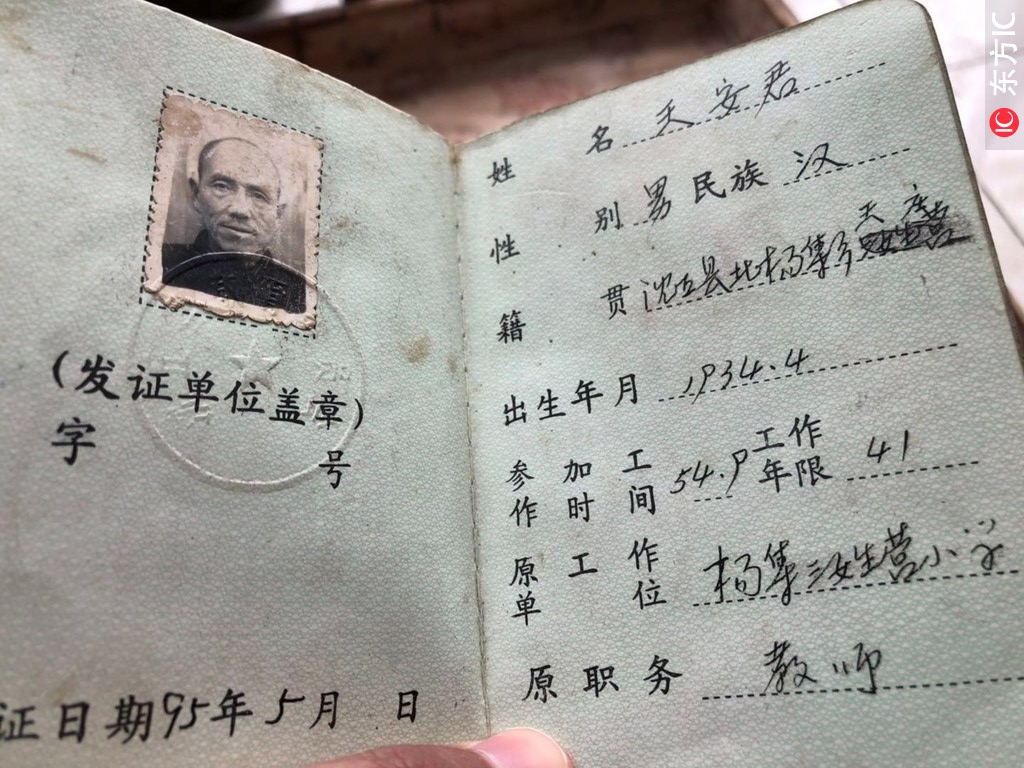 (发证单位盖章)
字 号
证日期95年5月 日
姓 名 天安君
性 别 男 民族 汉
籍 贯 沈丘县北杨集乡
出生年月 1934.4
参加工作时间 54.9 工作年限 41
原工作单位 杨集 小学
原职务 教师
东方IC